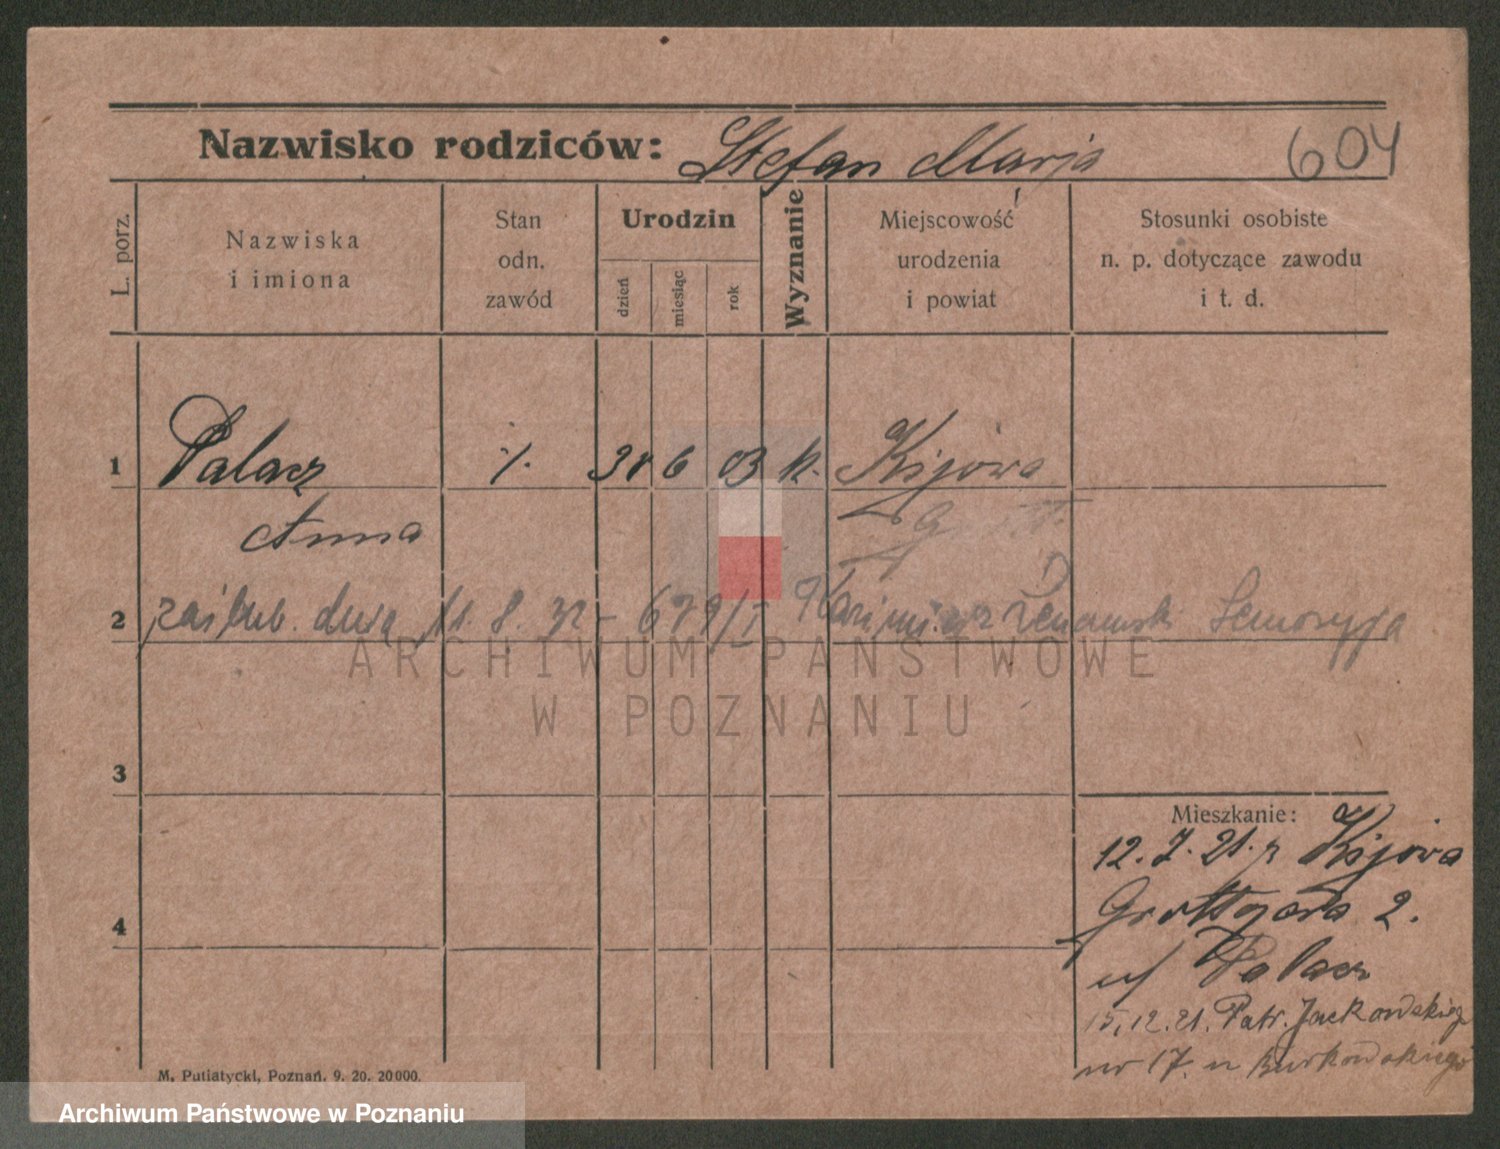 Nazwisko rodziców: Stefan Marja
604
L. porz.
Nazwiska
i imiona
Stan
odn.
zawód
Urodzin
dzień
miesiąc
rok
Wyznanie
Miejscowość
urodzenia
i powiat
Stosunki osobiste
n. p. dotyczące zawodu
i t. d.
1 Palacz 6 03 k. Kijowo
Anna
2 zaślub. dnia 11. 8. 32 - 679/I Kazimierz
3
4
Mieszkanie:
12. 7. 21. z Kijowa
Grottgera 2.
u/ Palacz
15.12.21. Patr. Jackowskiego
nr 17. u Burkowskiego
M. Putiatycki, Poznań. 9. 20. 20000.
ARCHIWUM PAŃSTWOWE
W POZNANIU
Archiwum Państwowe w Poznaniu